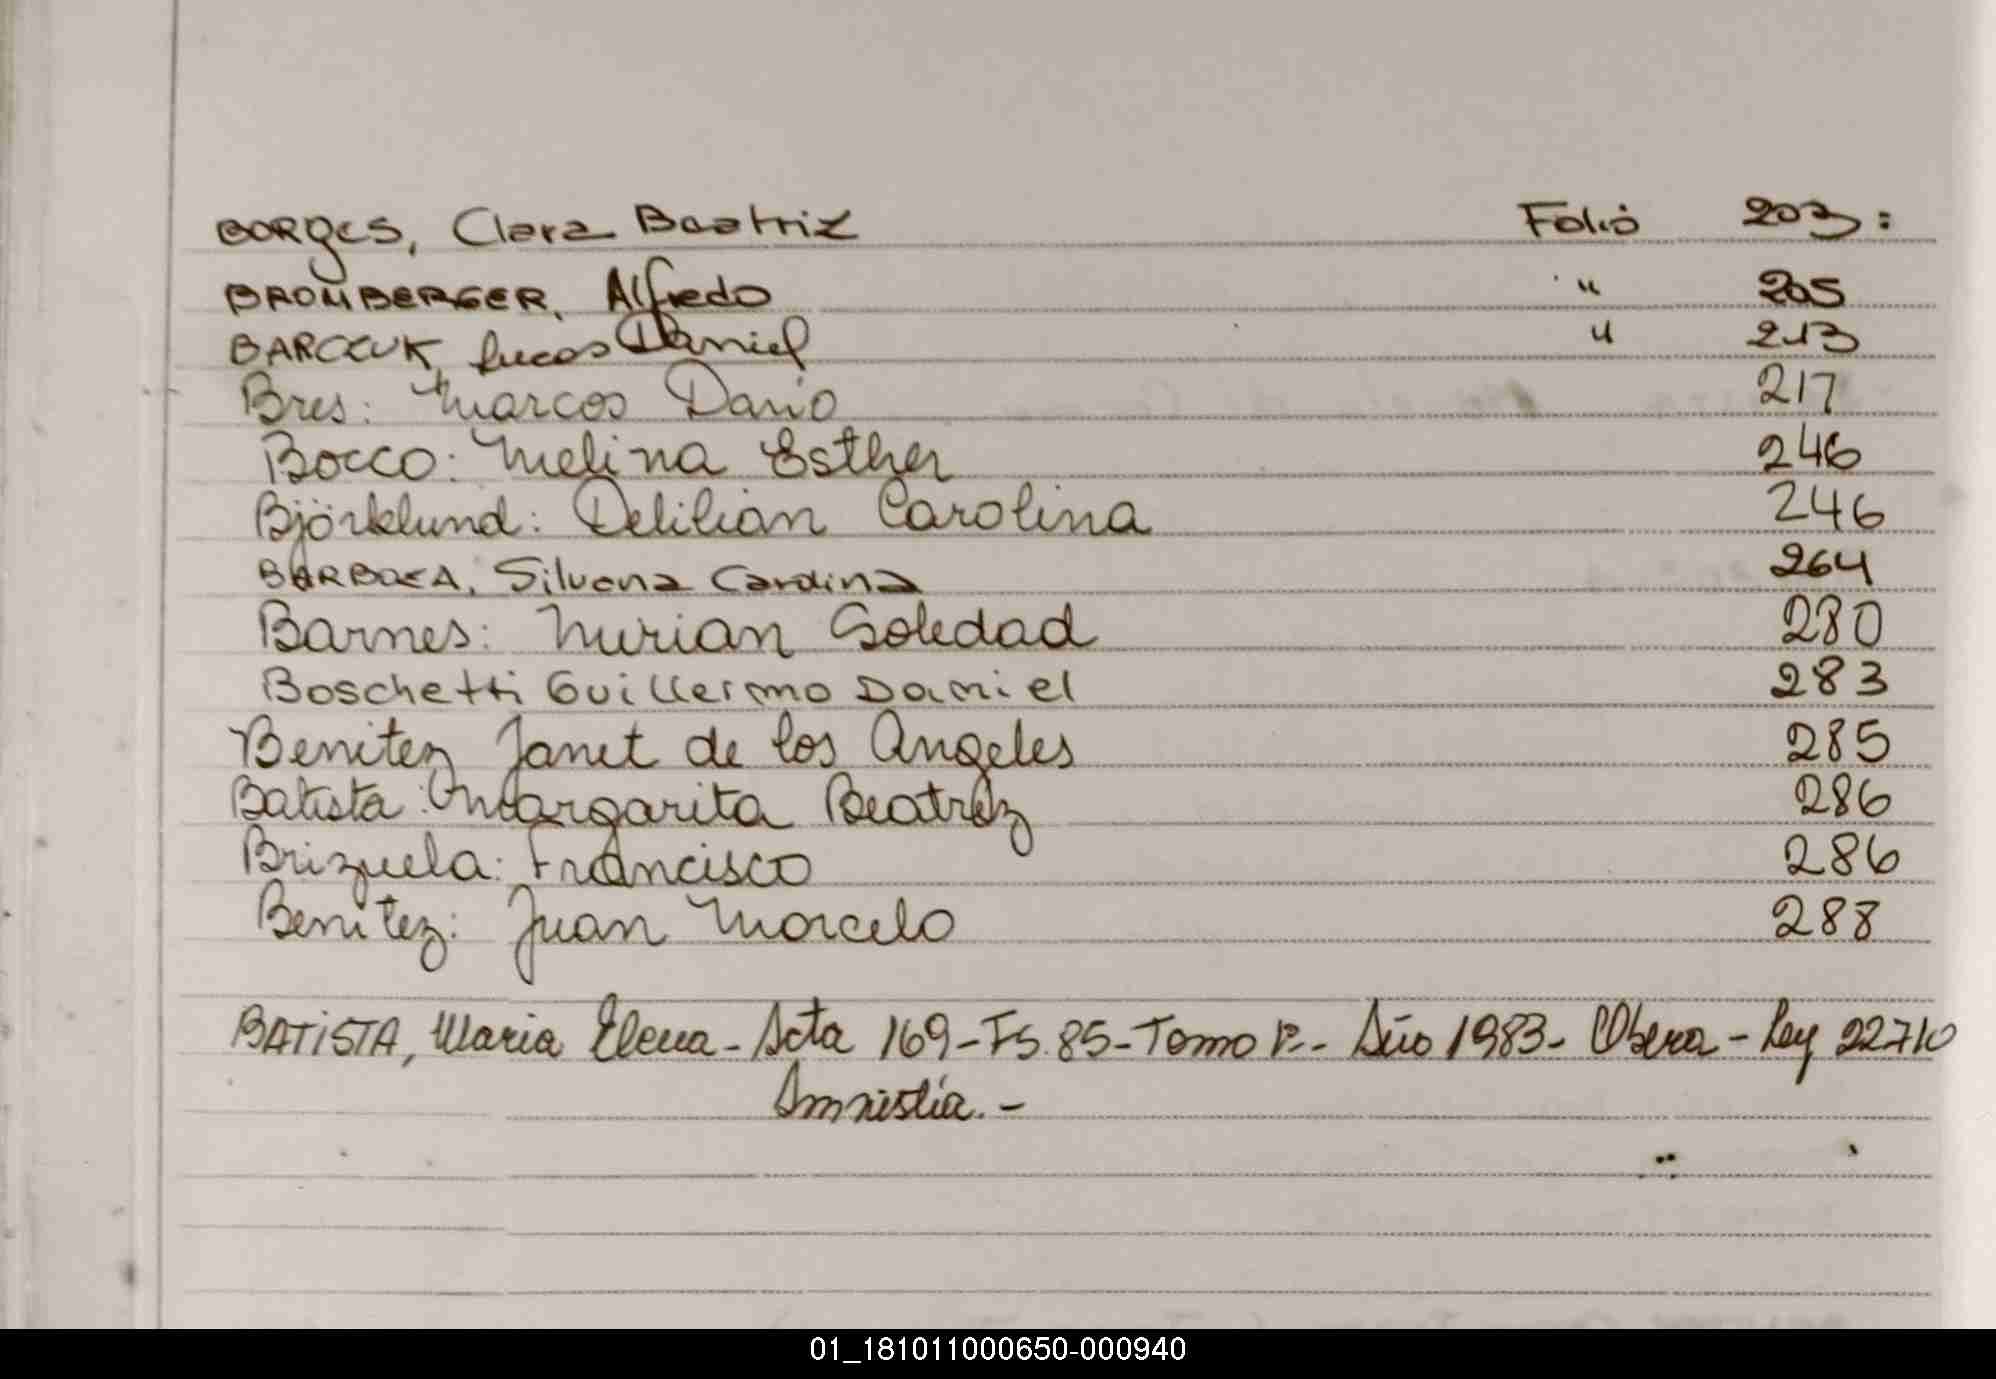 BORGES, Clara Beatriz Folio 203:
BROMBERGER, Alfredo " 205
BARCZUK, Lucas Daniel " 213
Bres: Marcos Dario 217
Bocco: Melina Esther 246
Björklund: Delilian Carolina 246
BARBOZA, Silvana Carolina 264
Barnes: Mirian Soledad 280
Boschetti Guillermo Daniel 283
Benitez Janet de los Angeles 285
Batista: Margarita Beatriz 286
Brizuela: Francisco 286
Benitez: Juan Marcelo 288
BATISTA, Maria Elena - Acta 169 - Fs. 85 - Tomo - Año 1983 - Obera - Ley 22710
Amnistía. -
01_181011000650-000940